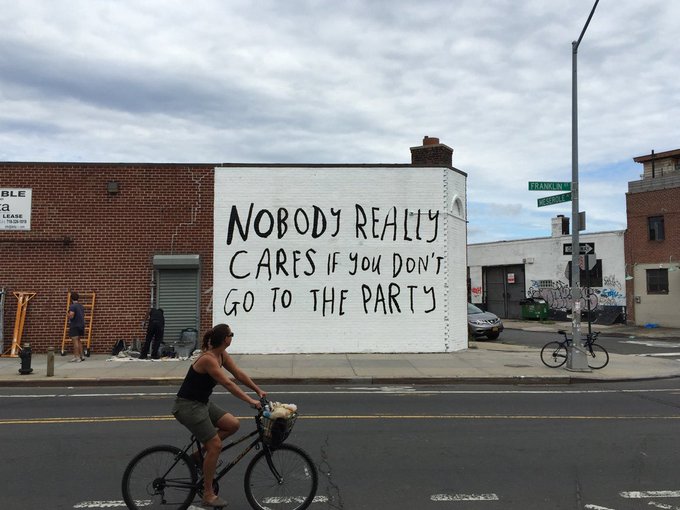 BLE
LEASE
NOBODY REALLY
CARES IF YOU DON'T
GO TO THE PARTY
FRANKLIN ST
MESEROLE